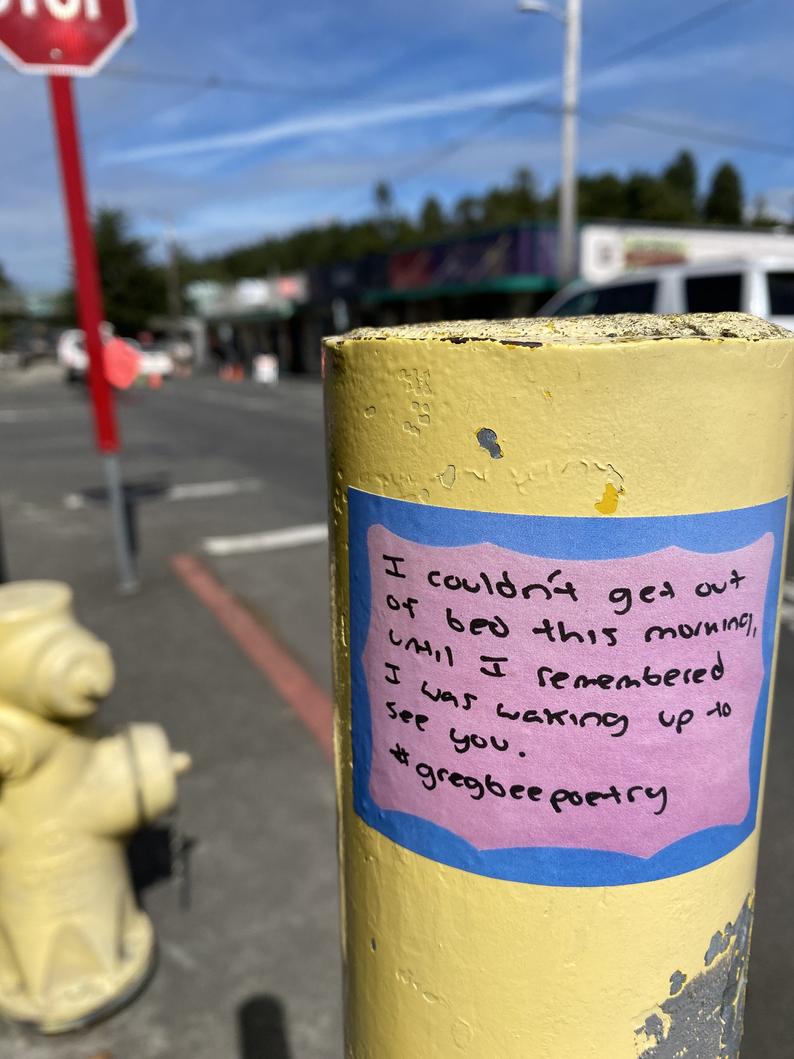 STOP
I couldn't get out
of bed this morning,
until I remembered
I was waking up to
see you.
#gregbeepoetry